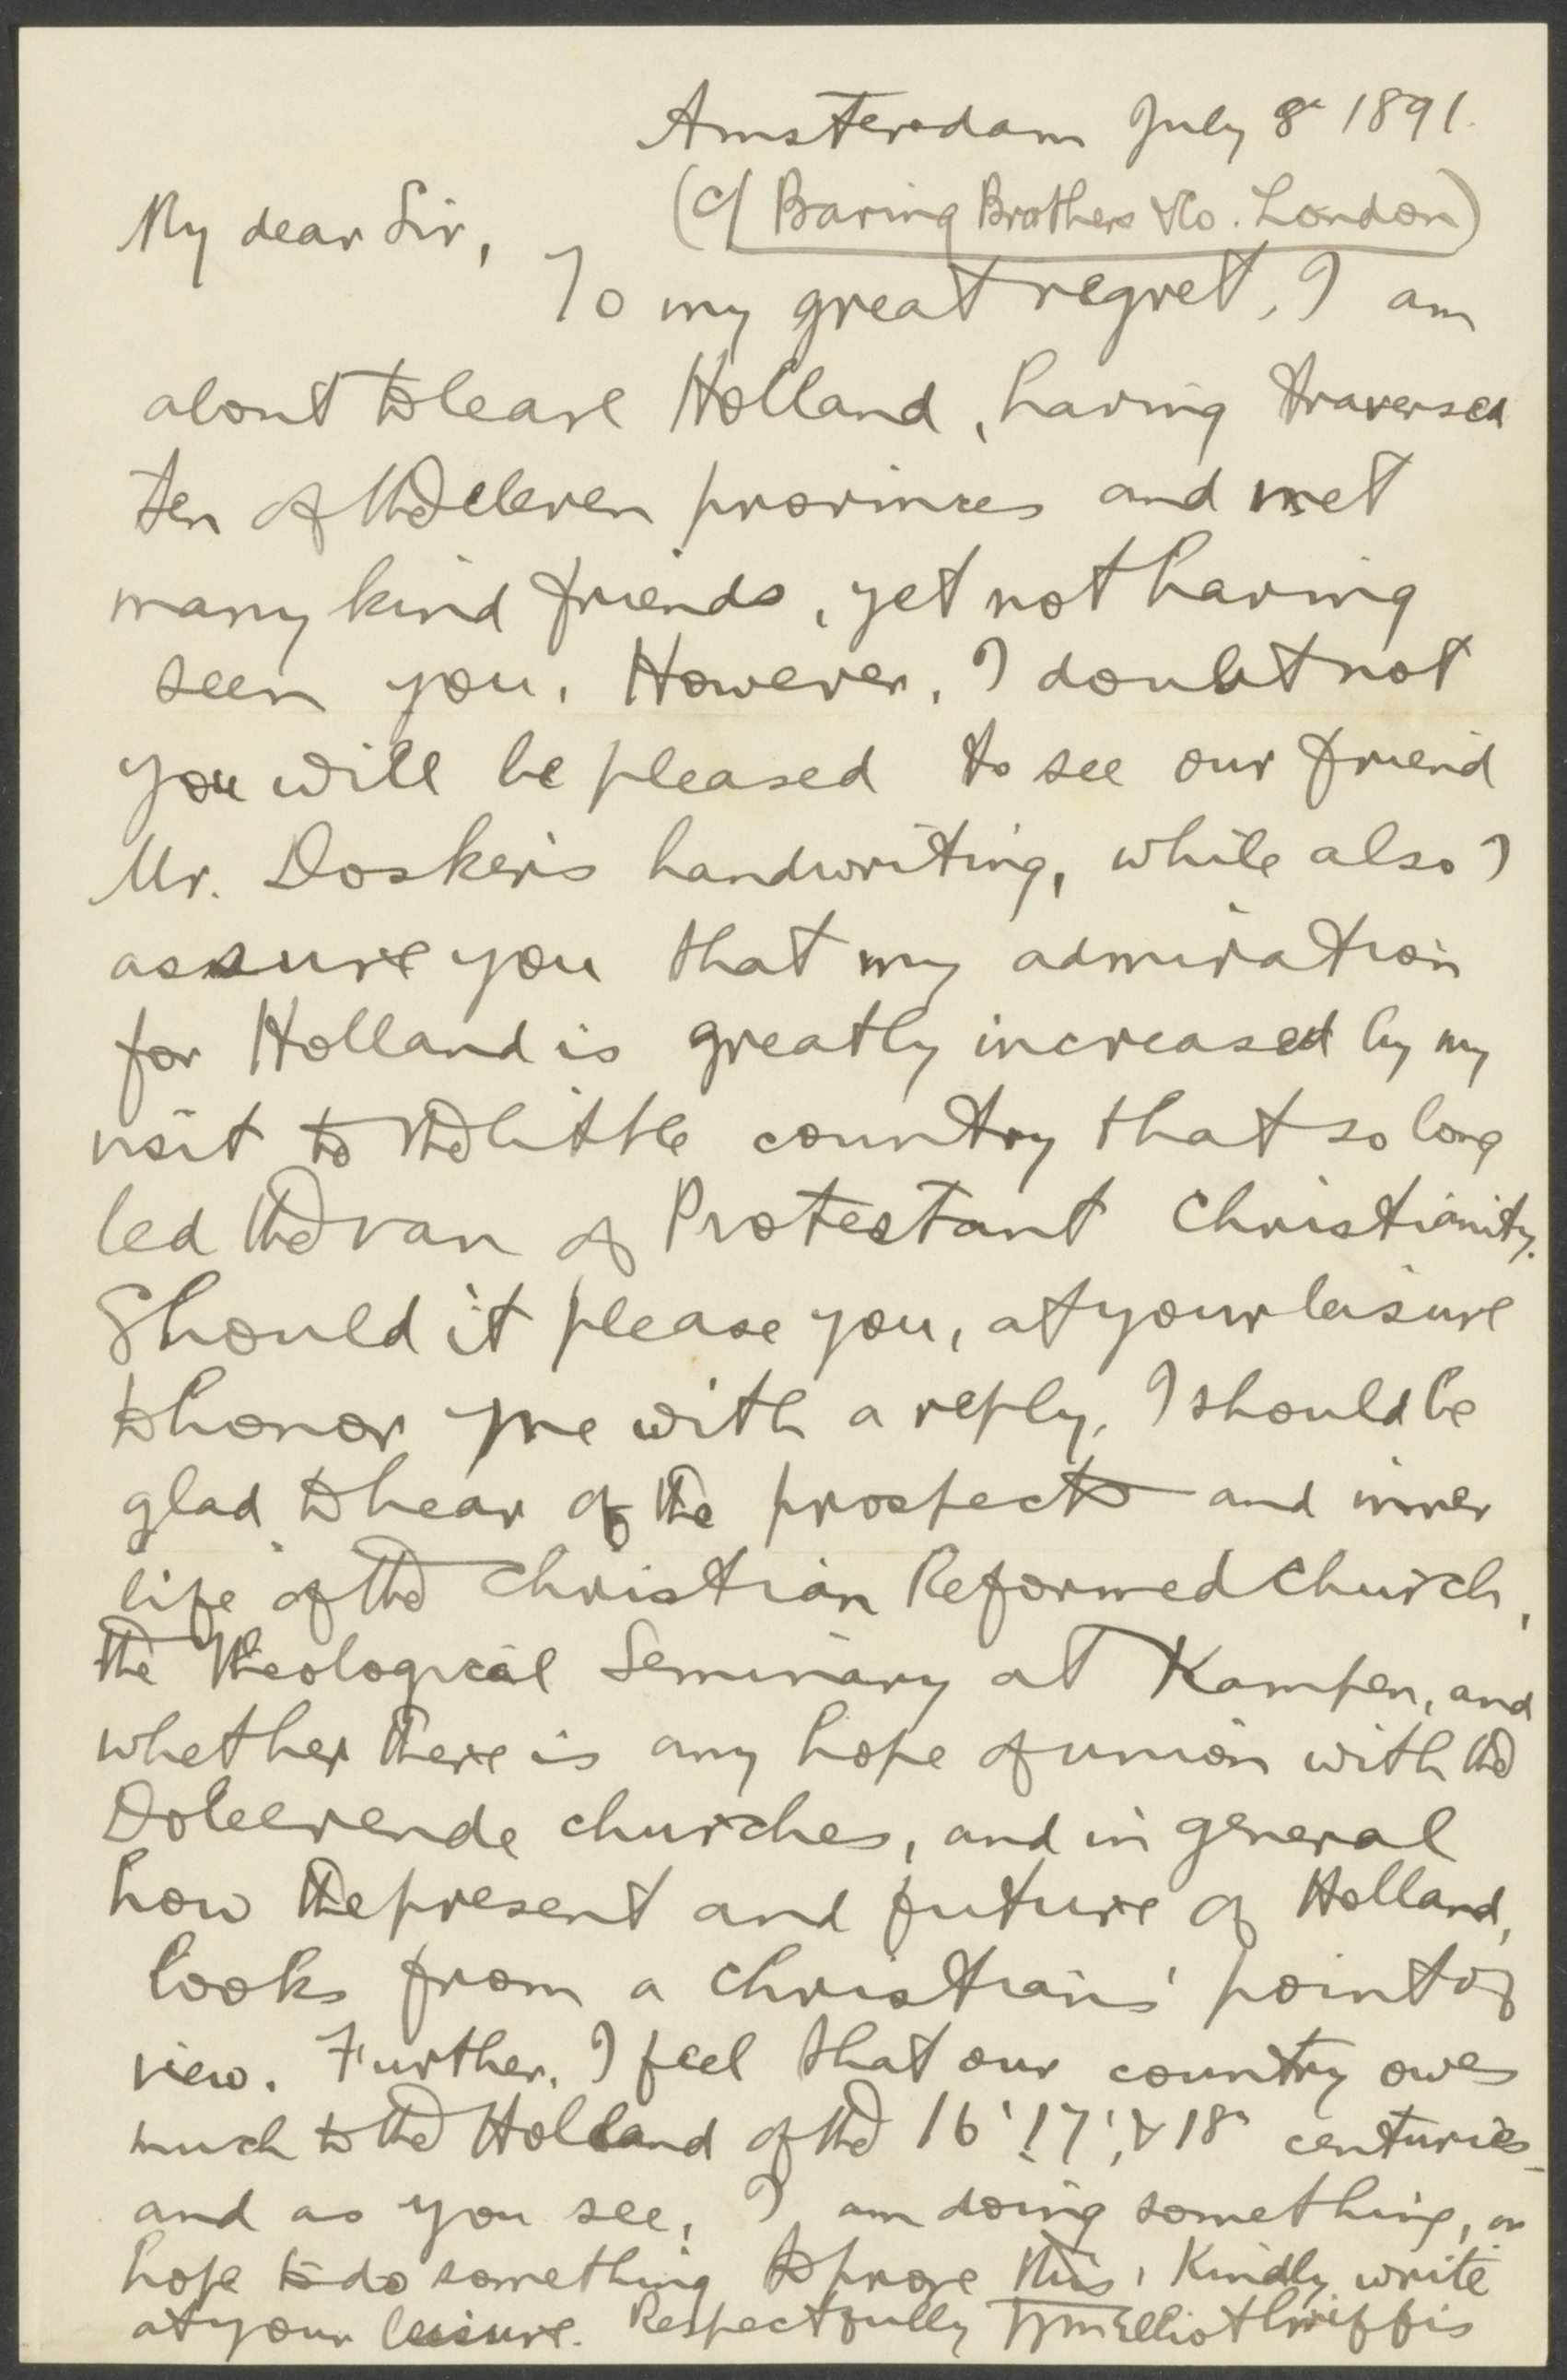 Amsterdam July 8" 1891.
(c/ Baring Brothers & Co. London)
My dear Sir,
To my great regret, I am
about to leave Holland, having traversed
ten of the eleven provinces and met
many kind friends, yet not having
seen you. However, I doubt not
you will be pleased to see our friend
Mr. Dosker's handwriting, while also I
assure you that my admiration
for Holland is greatly increased by my
visit to the little country that so long
led the van of Protestant Christianity.
Should it please you, at your leisure
to honor me with a reply, I should be
glad to hear of the prospects and inner
life of the Christian Reformed Church,
the Theological Seminary at Kampen, and
whether there is any hope of union with the
Doleerende churches, and in general
how the present and future of Holland,
looks from a Christians' point of
view. Further, I feel that our country owes
much to the Holland of the 16' 17', & 18" centuries
and as you see, I am doing something, or
hope to do something to prove this. Kindly write
at your leisure. Respectfully Wm Elliot Griffis